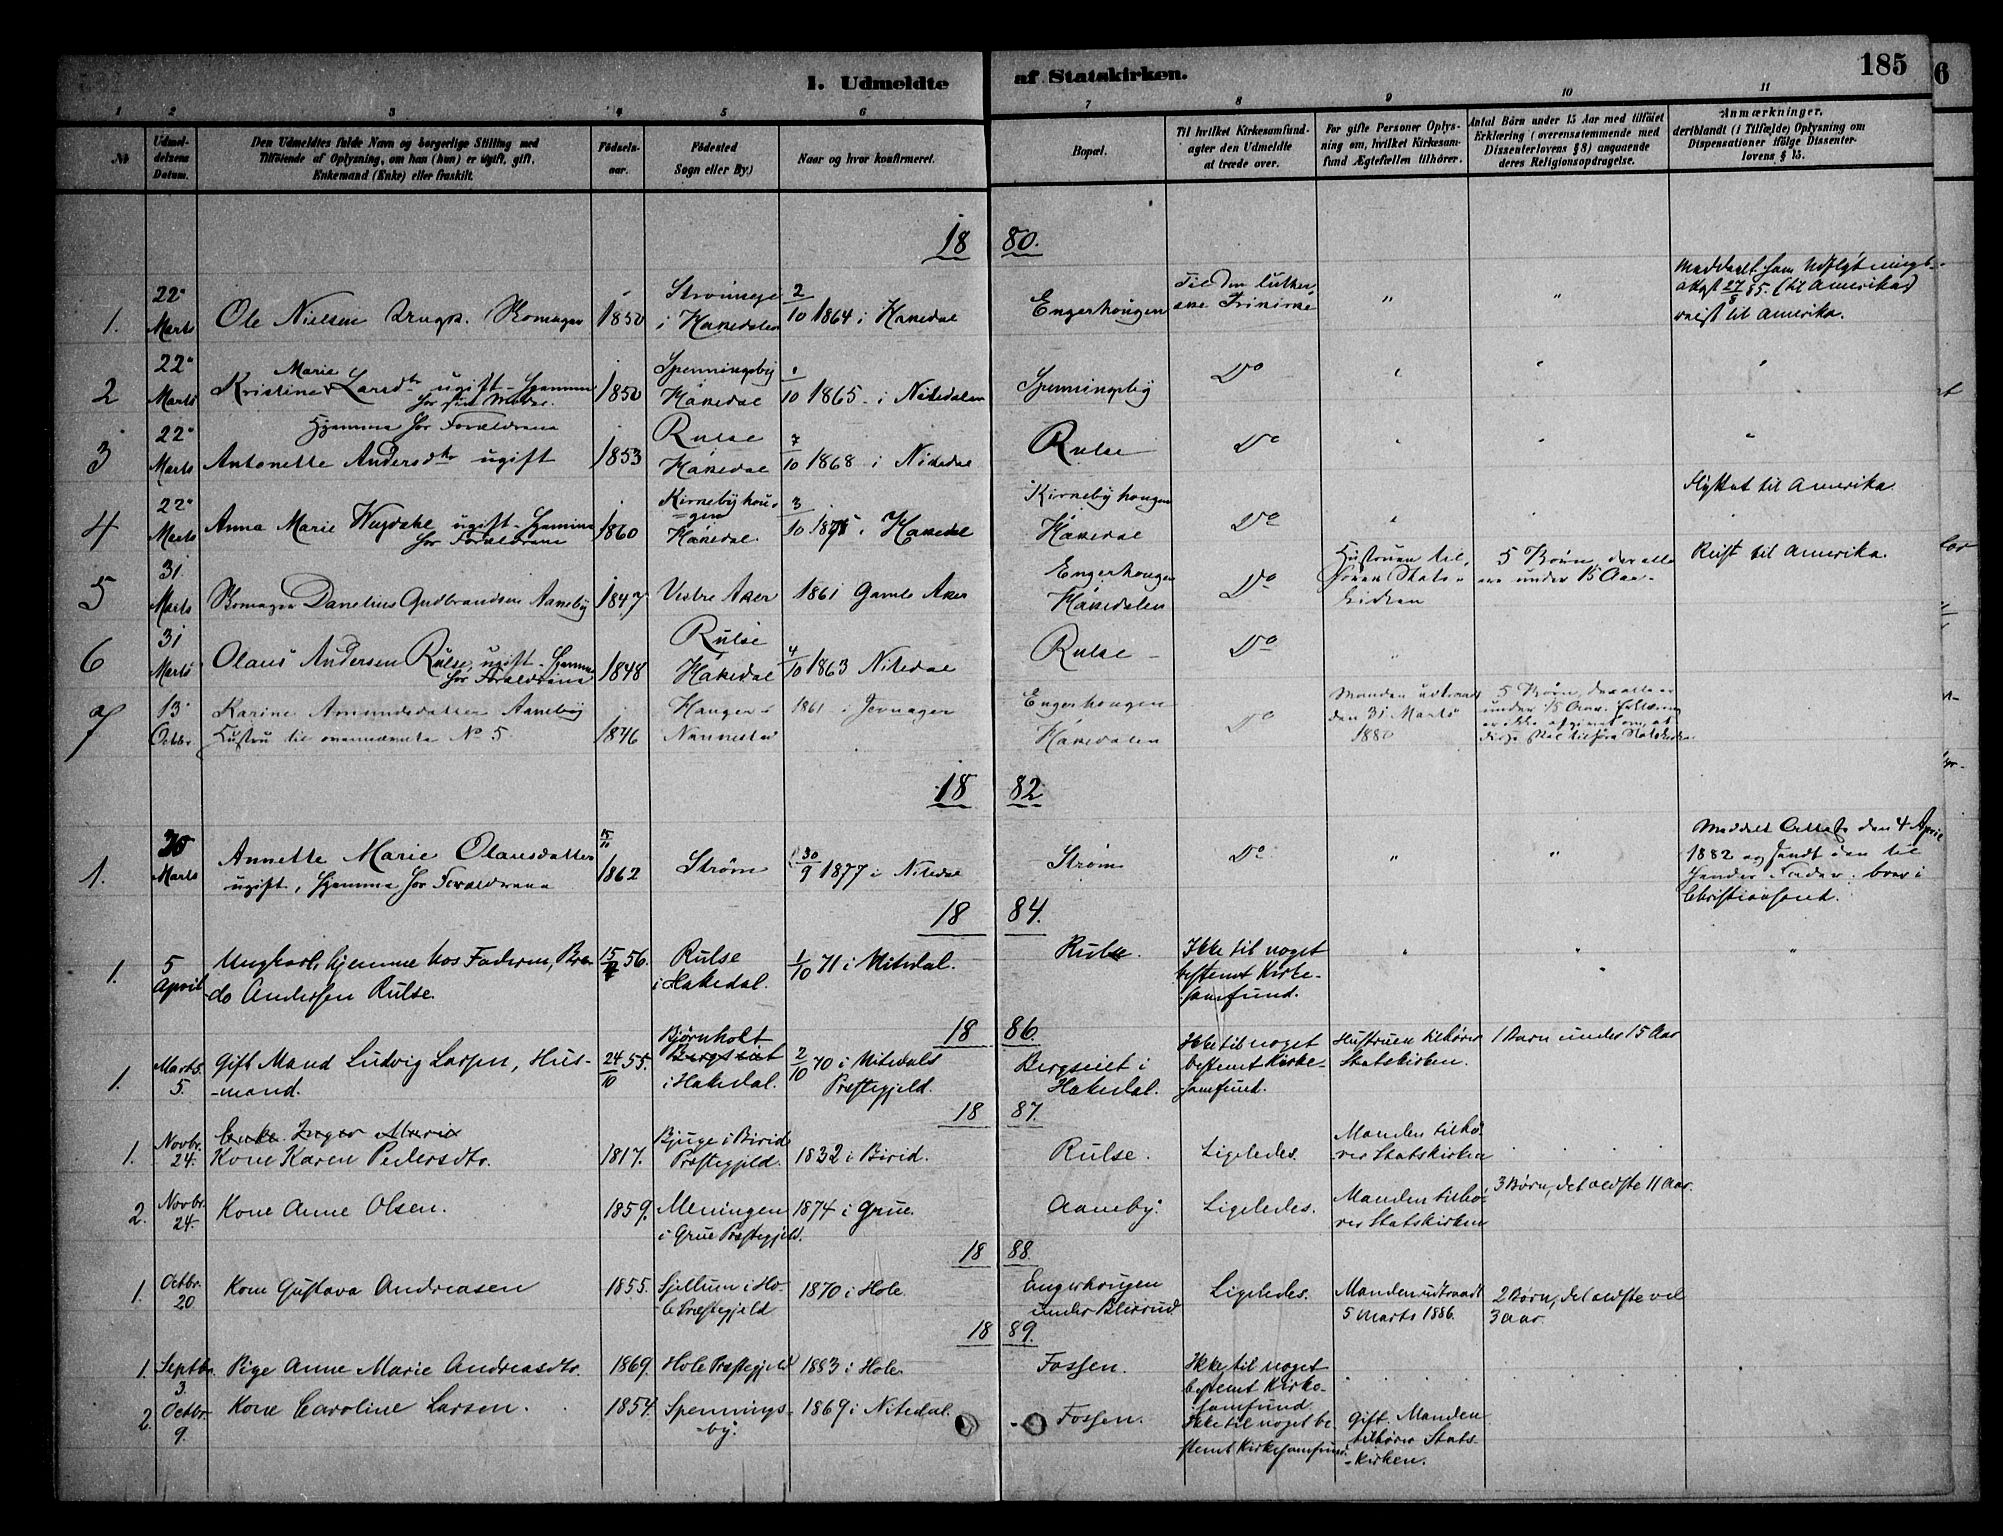 I. Udmeldte af Statskirken.
185
6
1 2 3 4 5 6 7 8 9 10 11
№
Udmel-
delsens
Datum.
Den Udmeldtes fulde Navn og borgerlige Stilling med
Tilføiende af Oplysning, om han (hun) er ugift, gift,
Enkemand (Enke) eller fraskilt.
Fødsels-
aar.
Fødested
Sogn eller By.)
Naar og hvor konfirmeret.
Bopæl.
Til hvilket Kirkesamfund-
agter den Udmeldte
at træde over.
For gifte Personer Oplys-
ning om, hvilket Kirkesam-
fund Ægtefællen tilhører.
Antal Børn under 15 Aar med tilføiet
Erklæring (overensstemmende med
Dissenterlovens § 8) angaaende
deres Religionsopdragelse.
Anmærkninger,
deriblandt (i Tilfælde) Oplysning om
Dispensationer ifølge Dissenter-
lovens § 15.
1880.
1.
22
Marts
Ole Nielsen Ungk. Skomager
1850
i Hakedalen
2/10 1864 i Hakedal
Engerhougen
Til den luther
ske Frikirke
"
"
Meddealt ham Udflytnings-
attest 27/8 85. (til Amerika)
reist til Amerika.
2
22
Marts
Marie
Kristine Larsdtr ugift - hjemme
for sin Moder.
1850
Spenningsby
Hakedal
10 1865 - i Nitedalen
Spenningsby
Do
3
22
Marts
Hjemme hos Forældrene
Antonette Andersdtr ugift
1853
Rulse
Hakedal
7/10 1868 i Nitedal
Rulse
Do
4
22
Marts
Anna Marie Wegdahl ugift - hjemme
hos Forældrene
1860
Kirkebyhou-
gen
Hakedal.
3/10 1875 i Hakedal
Kirkebyhougen
Hakedal
Do
Flyttet til Amerika
5
31.
Marts
Skomager Danelius Gudbrandsen Aaneby
1847
Vestre Aker
1861 Gamle Aker
Engerhougen
Hakedalen
Do
Hustruen til-
hører Stats-
kirken
5 Børn, der alle
ere under 15 Aar.
Reist til Amerika.
6
31
Marts
Olaus Andersen Rulse, ugift - hjemme
hos Forældrene
1848
Rulse
Hakedal
4/10 1863 Nitedal
Rulse -
Do
7
13
Octbr.
Karine Amundsdatter Aaneby
Hustru til ovennævnte No 5
1846
Nannestad
1861 i Jevnager
Engerhougen
Hakedalen
Do
Manden udtraadt
den 31 Marts
1880
5 Børn, der alle er
under 15 Aar. Erklæring
er ikke afgivet om, at
disse skal tilhøre Statskirken
1882
1.
30
Marts
Annette Marie Olausdatter
ugift, hjemme hos Forældrene
15/11
1862
Strøm
30/9 1877 i Nitedal
Strøm
Do
"
"
Meddelt Attest den 4 April
1882 og sendt den til
hendes Fader, boer i
Christianssand.
1884.
1.
5
April
Ungkarl, hjemme hos Faderen, Bre-
do Anderssen Rulse.
15/ 56.
Rulse
i Hakedal.
1/10 71 i Nitedal.
Rulse.
Ikke til noget
bestemt Kirke-
samfund.
"
"
"
1886.
1.
Marts
5.
Gift Mand Ludvig Larsen, Hus-
mand.
24/10 55.
Bjørnholt
Bergseiet
i Hakedal.
2/10 70 i Nitedals
Præstegjeld.
Bergseiet i
Hakedal.
Ikke til noget
bestemt Kirke-
samfund.
Hustruen tilhører
Statskirken.
1 Barn under 15 Aar
1887.
1.
Novbr.
24.
Enke Inger Marie
Kone Karen Pedersdtr.
1817.
Bjuge i Birids
Præstegjeld.
1832 i Birid.
Rulse.
Ligeledes.
Manden tilhø-
rer Statskirken
2.
Novbr.
24.
Kone Anne Olsen.
1859.
Meningen
i Grue Præstegjeld.
1874 i Grue.
Aaneby.
Ligeledes.
Manden tilhø-
rer Statskirken
3 Børn, det ældste 11 Aar.
1888.
1.
Octbr.
20.
Kone Gustava Andreasen
1855.
Gjellum i Ho-
le Præstegjeld
1870 i Hole
Engerhougen
under Blikrud
Ligeledes.
Manden udtraadt
5 Marts 1886.
2 Børn, det ældste vel
3 aar.
1889.
1.
Septbr.
3.
Pige Anne Marie Andreasdtr.
1869.
Hole Præstegjeld
1883 i Hole
Fossen.
Ikke til noget
bestemt Kirke-
samfund
2.
Octbr.
9.
Kone Caroline Larsen.
1854.
Spennings-
by.
1869 i Nitedal.
Fossen.
Ikke til noget be-
stemt Kirkesamfund.
Gift. Manden
tilhører Stats-
kirken.